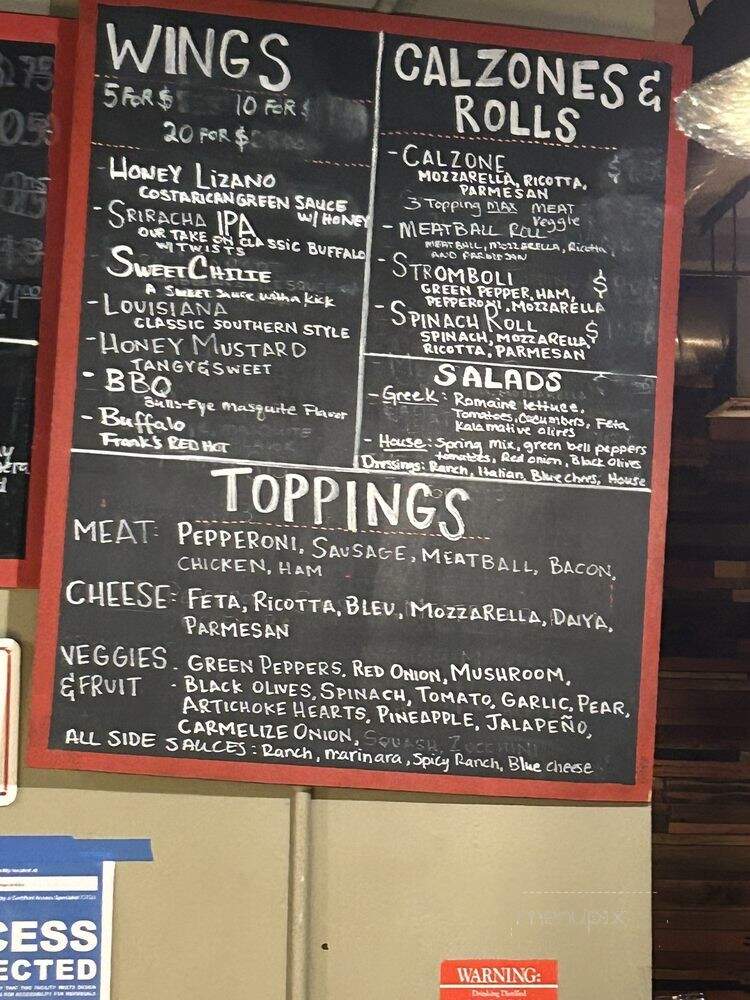 WINGS
5 FOR $ 10 FOR $
20 FOR $
- HONEY LIZANO
COSTARICAN GREEN SAUCE
W/ HONEY
- SRIRACHA IPA
OUR TAKE ON CLASSIC BUFFALO
W/ TWISTS
SWEET CHILIE
A SWEET SAUCE with a Kick
- LOUISIANA
CLASSIC SOUTHERN STYLE
- HONEY MUSTARD
TANGY & SWEET
- BBQ
Bulls-Eye Masquite Flavor
- Buffalo
Frank's RED HOT
CALZONES &
ROLLS
- CALZONE
MOZZARELLA, RICOTTA,
PARMESAN
3 Topping MAX MEAT
Veggie
- MEATBALL ROLL
MEATBALL, MOZZERELLA, Ricotta,
AND PARMESAN
- STROMBOLI $
GREEN PEPPER, HAM,
PEPPERONI, MOZZARELLA
- SPINACH ROLL $
SPINACH, MOZZARELLA,
RICOTTA, PARMESAN
SALADS
- Greek: Romaine lettuce,
Tomatoes, Cucumbers, Feta
Kalamative olives
- House: Spring Mix, green bell peppers
tomatoes, Red onion, Black Olives
Dressings: Ranch, Italian, Blue chees, House
TOPPINGS
MEAT: PEPPERONI, SAUSAGE, MEATBALL, BACON,
CHICKEN, HAM
CHEESE: FETA, RICOTTA, BLEU, MOZZARELLA, DAIYA,
PARMESAN
VEGGIES - GREEN PEPPERS, RED ONION, MUSHROOM,
& FRUIT - BLACK OLIVES, SPINACH, TOMATO, GARLIC, PEAR,
ARTICHOKE HEARTS, PINEAPPLE, JALAPEÑO,
CARMELIZE ONION, SQUASH, ZUCCHINI
ALL SIDE SAUCES: Ranch, marinara, Spicy Ranch, Blue cheese
menupix
CESS
ECTED
WARNING:
Drinking Distilled